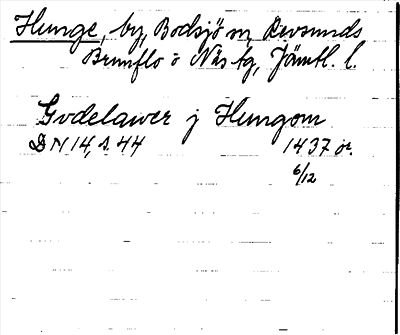 Hunge, by, Bodsjö sn, Revsunds
Brunflo o Näs tg, Jämtl. l.
Gudelawer j Hungom
DN 14, s. 44 1437 or.
6/12